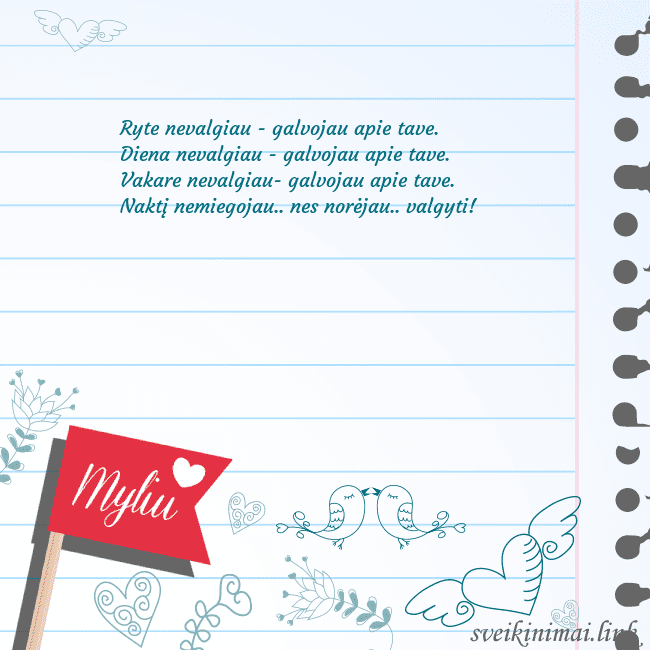 Ryte nevalgiau - galvojau apie tave.
Diena nevalgiau - galvojau apie tave.
Vakare nevalgiau- galvojau apie tave.
Naktį nemiegojau.. nes norėjau.. valgyti!
Myliu
sveikinimai.link